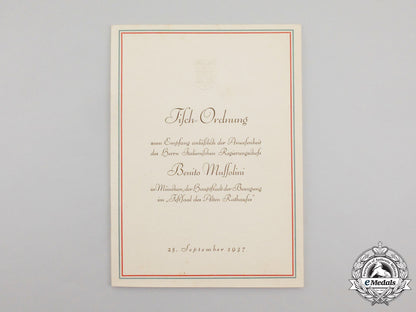 Tisch-Ordnung
zum Empfang anläßlich der Anwesenheit
des Herrn Italienischen Regierungschefs
Benito Mussolini
in München, der Hauptstadt der Bewegung
im „Festsaal des Alten Rathauses"
25. September 1937
eMedals